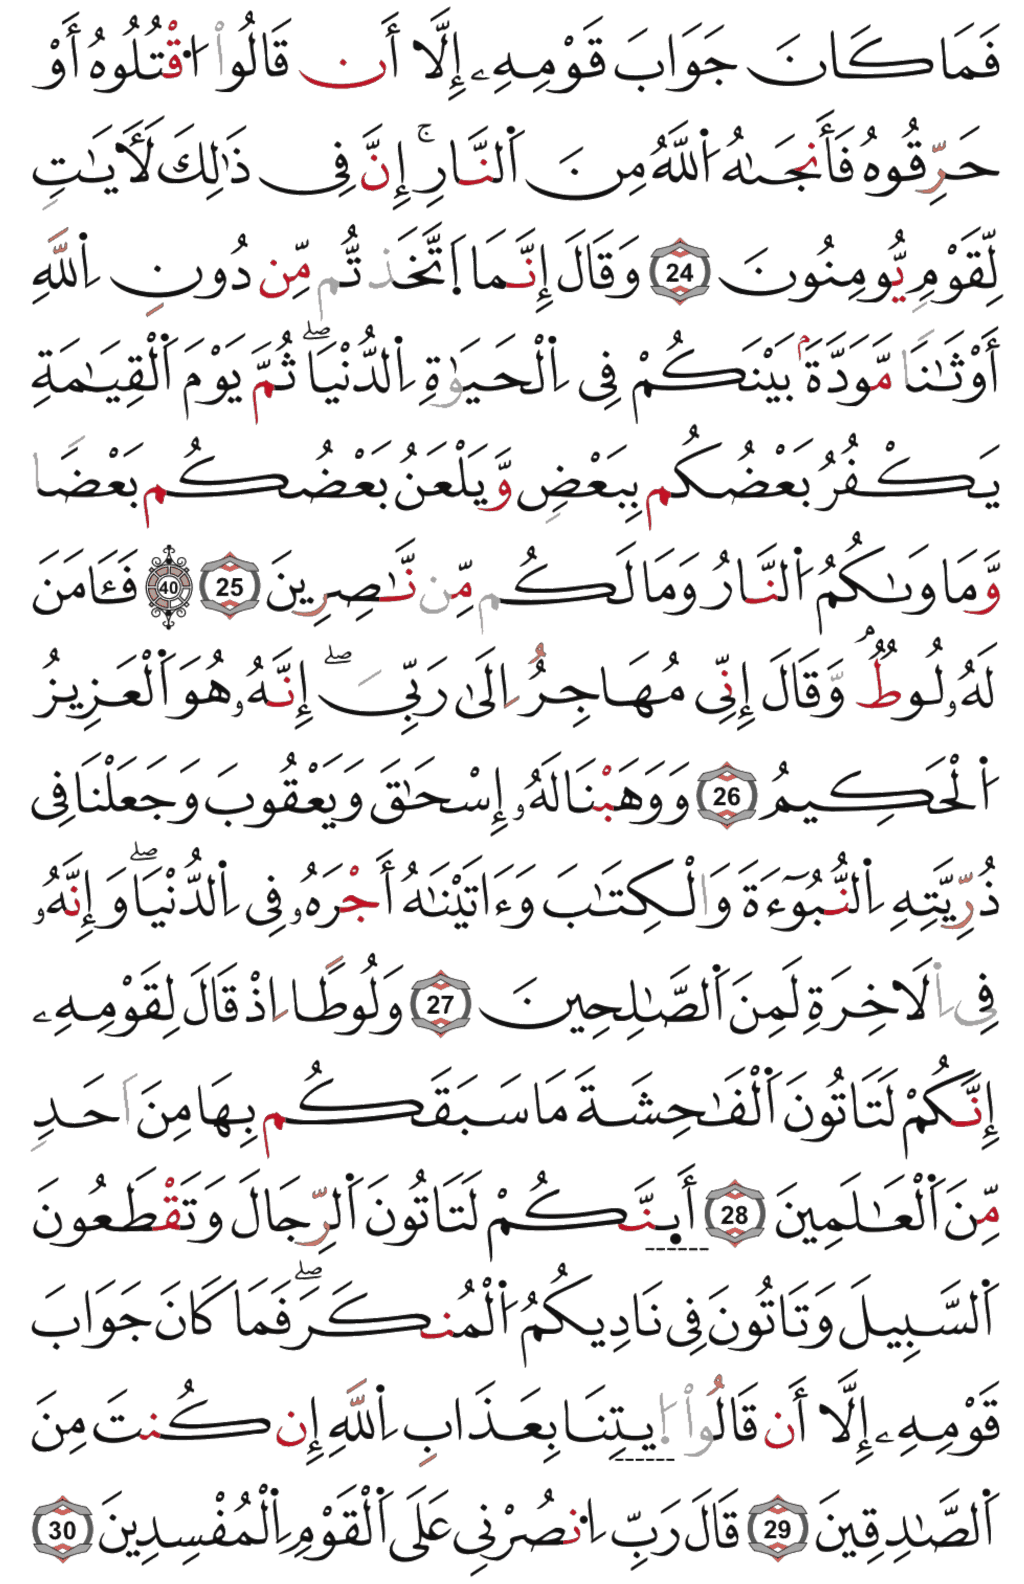 فَمَا كَانَ جَوَابَ قَوْمِهِۦ إِلَّا أَن قَالُواْ اُ۟قْتُلُوهُ أَوْ
حَرِّقُوهُ فَأَنجَىٰهُ اُ۬للَّهُ مِنَ اَ۬لنَّارِۚ إِنَّ فِى ذَٰلِكَ لَأٓيَٰتٍ
لِّقَوْمٍ يُومِنُونَ 24 وَقَالَ إِنَّمَا اَ۪تَّخَذتُّم مِّن دُونِ اِ۬للَّهِ
أَوْثَٰنًا مَّوَدَّةَۢ بَيْنَكُمْ فِى اِ۬لْحَيَوٰةِ اِ۬لدُّنْيَاۖ ثُمَّ يَوْمَ اَ۬لْقِيَٰمَةِ
يَكْفُرُ بَعْضُكُم بِبَعْضٍ وَّيَلْعَنُ بَعْضُكُم بَعْضًا
وَّمَاوىٰكُمُ اُ۬لنَّارُ وَمَا لَكُم مِّن نَّٰصِرِينَ 25 40 فَـَٔامَنَ
لَهُۥ لُوطٌۘ وَّقَالَ إِنِّى مُهَاجِرٌ اِلَىٰ رَبِّىَۖ إِنَّهُۥ هُوَ اَ۬لْعَزِيزُ
اُ۬لْحَكِيمُ 26 وَوَهَبْنَا لَهُۥ إِسْحَٰقَ وَيَعْقُوبَ وَجَعَلْنَا فِى
ذُرِّيَّتِهِ اِ۬لنُّبُوٓءَةَ وَالْكِتَٰبَ وَءَاتَيْنَٰهُ أَجْرَهُۥ فِى اِ۬لدُّنْيَاۖ وَإِنَّهُۥ
فِى اِ۬لَاخِرَةِ لَمِنَ اَ۬لصَّٰلِحِينَ 27 وَلُوطًا اِذْ قَالَ لِقَوْمِهِۦ
إِنَّكُمْ لَتَاتُونَ اَ۬لْفَٰحِشَةَ مَا سَبَقَكُم بِهَا مِنَ اَحَدٍ
مِّنَ اَ۬لْعَٰلَمِينَ 28 أَى۪نَّكُمْ لَتَاتُونَ اَ۬لرِّجَالَ وَتَقْطَعُونَ
اَ۬لسَّبِيلَ وَتَاتُونَ فِى نَادِيكُمُ اُ۬لْمُنكَرَۖ فَمَا كَانَ جَوَابَ
قَوْمِهِۦ إِلَّا أَن قَالُواْ اُ۪يتِنَا بِعَذَابِ اِ۬للَّهِ إِن كُنتَ مِنَ
اَ۬لصَّٰدِقِينَ 29 قَالَ رَبِّ اِ۟نصُرْنِى عَلَى اَ۬لْقَوْمِ اِ۬لْمُفْسِدِينَ 30